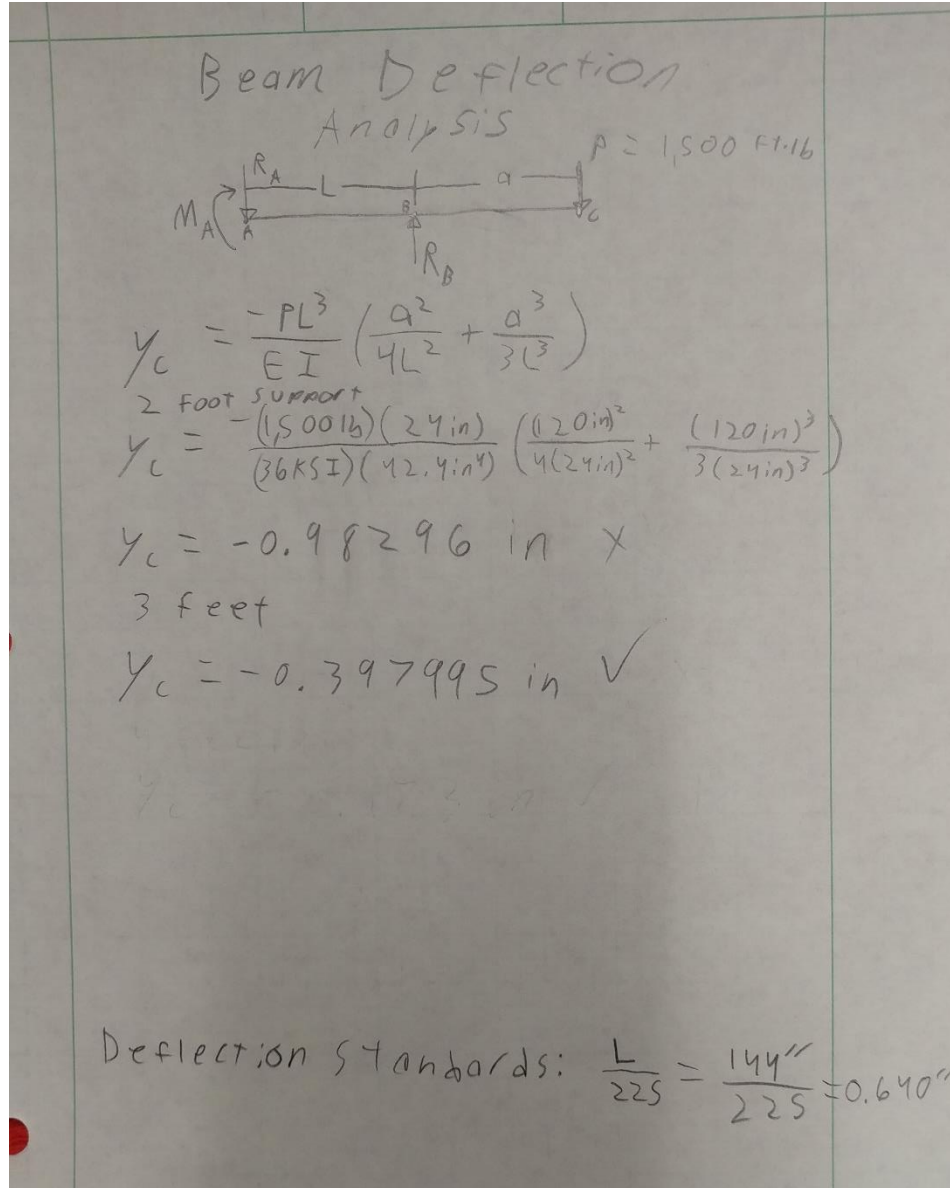 Beam Deflection
Analysis
P = 1,500 ft.lb
R_A
L
a
M_A
A
B
C
R_B
y_c = -PL³/EI (a²/4L² + a³/3L³)
2 foot support
y_c = -(1,500lb)(24in)/(36KSI)(42.4in⁴) ((120in)²/4(24in)² + (120in)³/3(24in)³)
y_c = -0.98296 in X
3 feet
y_c = -0.397995 in ✓
Deflection standards: L/225 = 144″/225 = 0.640″